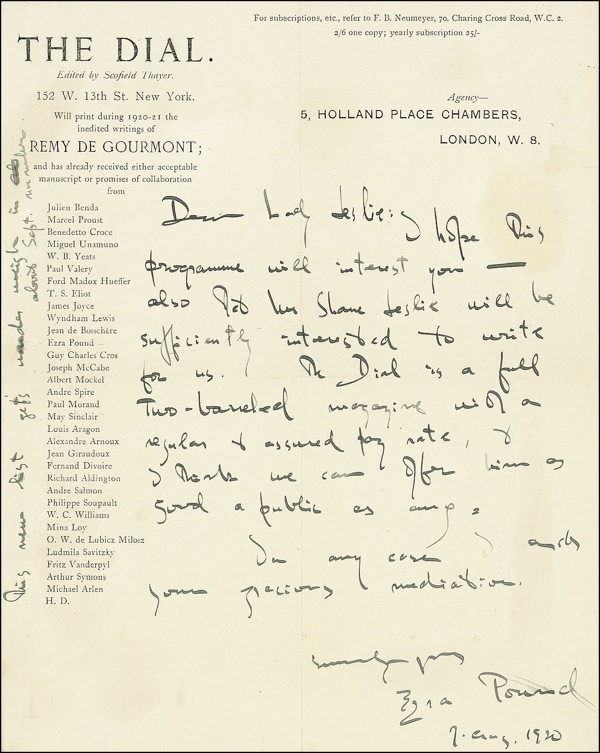 For subscriptions, etc., refer to F. B. Neumeyer, 70. Charing Cross Road, W.C. 2.
2/6 one copy; yearly subscription 25/-
THE DIAL.
Edited by Scofield Thayer.
152 W. 13th St. New York.
Agency—
5, HOLLAND PLACE CHAMBERS,
LONDON, W. 8.
Will print during 1920-21 the
inedited writings of
REMY DE GOURMONT;
and has already received either acceptable
manuscript or promises of collaboration
from
Julien Benda
Marcel Proust
Benedetto Croce
Miguel Unamuno
W. B. Yeats
Paul Valery
Ford Madox Hueffer
T. S. Eliot
James Joyce
Wyndham Lewis
Jean de Bosschère
Ezra Pound
Guy Charles Cros
Joseph McCabe
Albert Mockel
Andre Spire
Paul Morand
May Sinclair
Louis Aragon
Alexandre Arnoux
Jean Giraudoux
Fernand Divoire
Richard Aldington
Andre Salmon
Philippe Soupault
W. C. Williams
Mina Loy
O. W. de Lubicz Milosz
Ludmila Savitzky
Fritz Vanderpyl
Arthur Symons
Michael Arlen
H. D.
Dear Lady Leslie: I hope this
programme will interest you —
also that Mr Shane Leslie will be
sufficiently interested to write
for us. The Dial is a full
two-barreled magazine with a
regular & assured pay rate, &
I think we can offer him as
good a public as any.
In any case I
your gracious mediation.
Sincerely yours
Ezra Pound
7. Aug. 1920
This new list gets under weigh in
about Sept. number